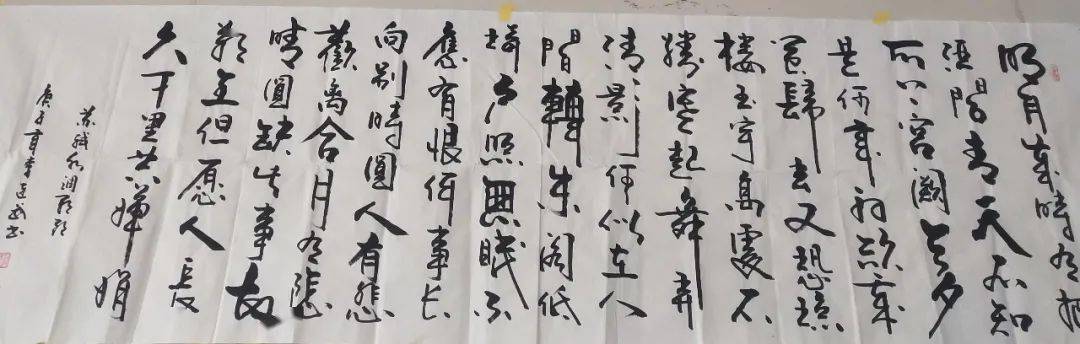 明月幾時有把
酒問青天不知
天上宫闕今夕
是何年我欲乘
風歸去又恐瓊
樓玉宇高處不
勝寒起舞弄
清影何似在人
間轉朱閣低
綺户照無眠不
應有恨何事長
向别時圓人有悲
歡離合月有陰
晴圓缺此事古
難全但愿人長
久千里共嬋娟
蘇軾水調歌頭
庚子夏李書